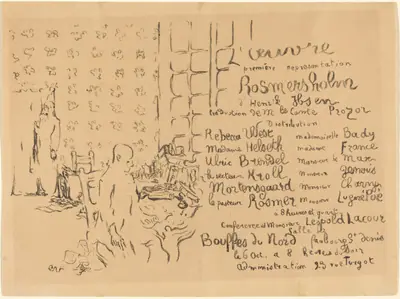 L'œuvre
première représentation
Rosmersholm
d'Henrik Ibsen
traduction de M. le Comte Prozor
Distribution
Rebecca West mademoiselle Bady
Madame Helseth madame France
Ulric Brendel Monsieur de Max
le recteur Kroll Monsieur Ganous
Mortensgaard Monsieur Charny
le pasteur Rosmer Monsieur Lugné Poe
à 8 heures et quart
Conférence de Monsieur Leopold Lacour
Salle
Bouffes du Nord faubourg St denis
le 6 Oct. à 8 heures du Soir
administration 23 rue Turgot